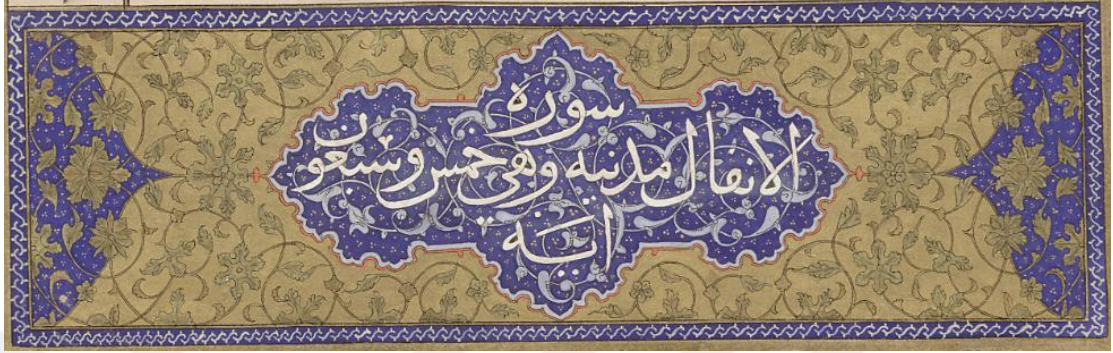 سورة
الانفال مدنيه وهي خمس وسبعون
اية